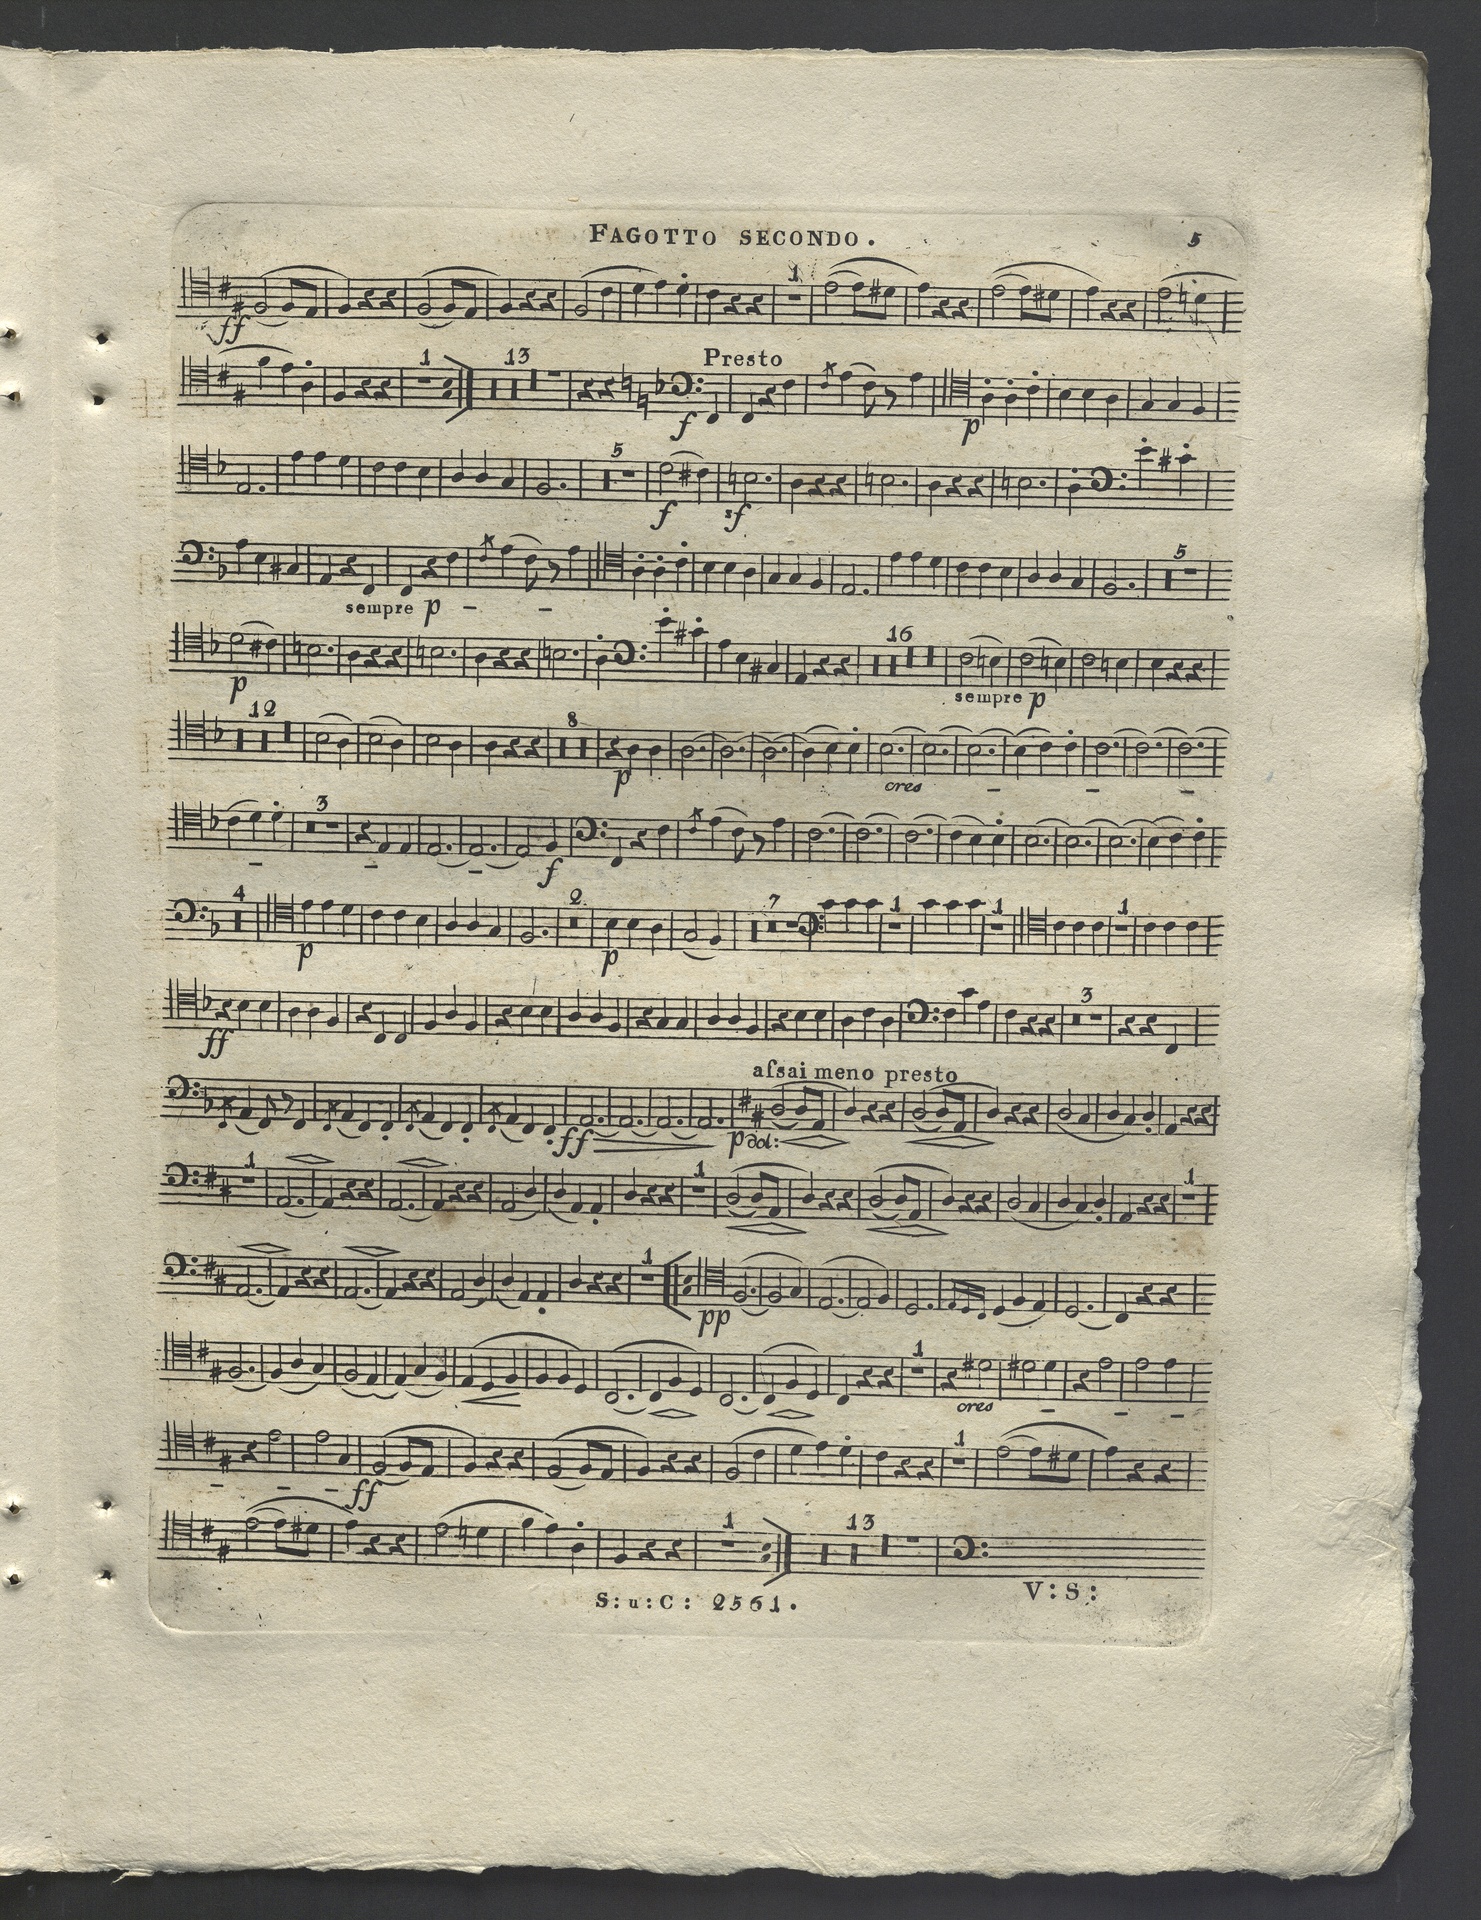 FAGOTTO SECONDO. 5
1
ff
1 13 Presto
f p
5
f sf
5
sempre p
16
p sempre p
12 8
p cres
3
f
4 2 7 1 1 1
p p
3
ff
aſsai meno presto
ff p dol:
1 1 1
1
pp
1
cres
1
ff
1 13
S: u: C: 2561. V: S: